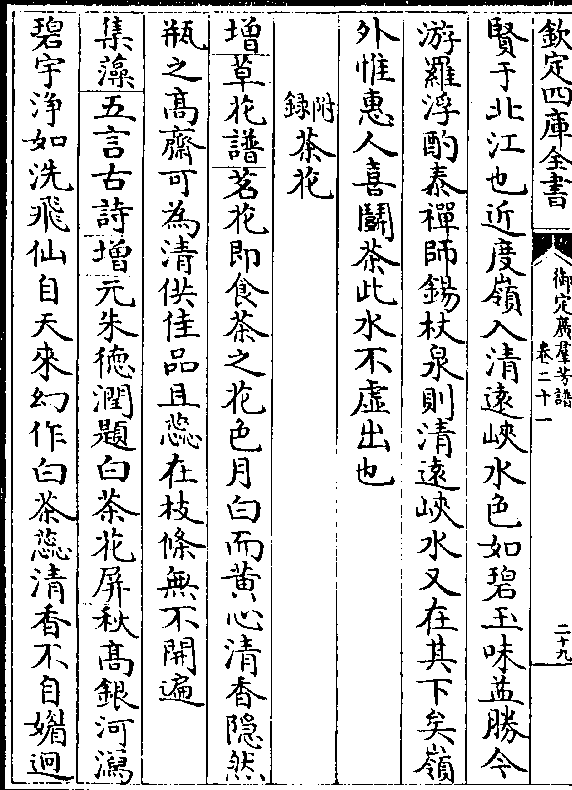 欽定四庫全書
御定廣羣芳譜
卷二十一
二十九
賢于北江也近度嶺入清遠峽水色如碧玉味益勝今
游羅浮酌泰禪師錫杖泉則清遠峽水又在其下矣嶺
外惟惠人喜鬬茶此水不虛出也
附録茶花
增草花譜茗花即食茶之花色月白而黃心清香隠然
瓶之髙齋可為清供佳品且蘂在枝條無不開遍
集藻五言古詩增元朱徳潤題白茶花屏秋髙銀河瀉
碧宇浄如洗飛仙自天來幻作白茶蘂清香不自媚迥